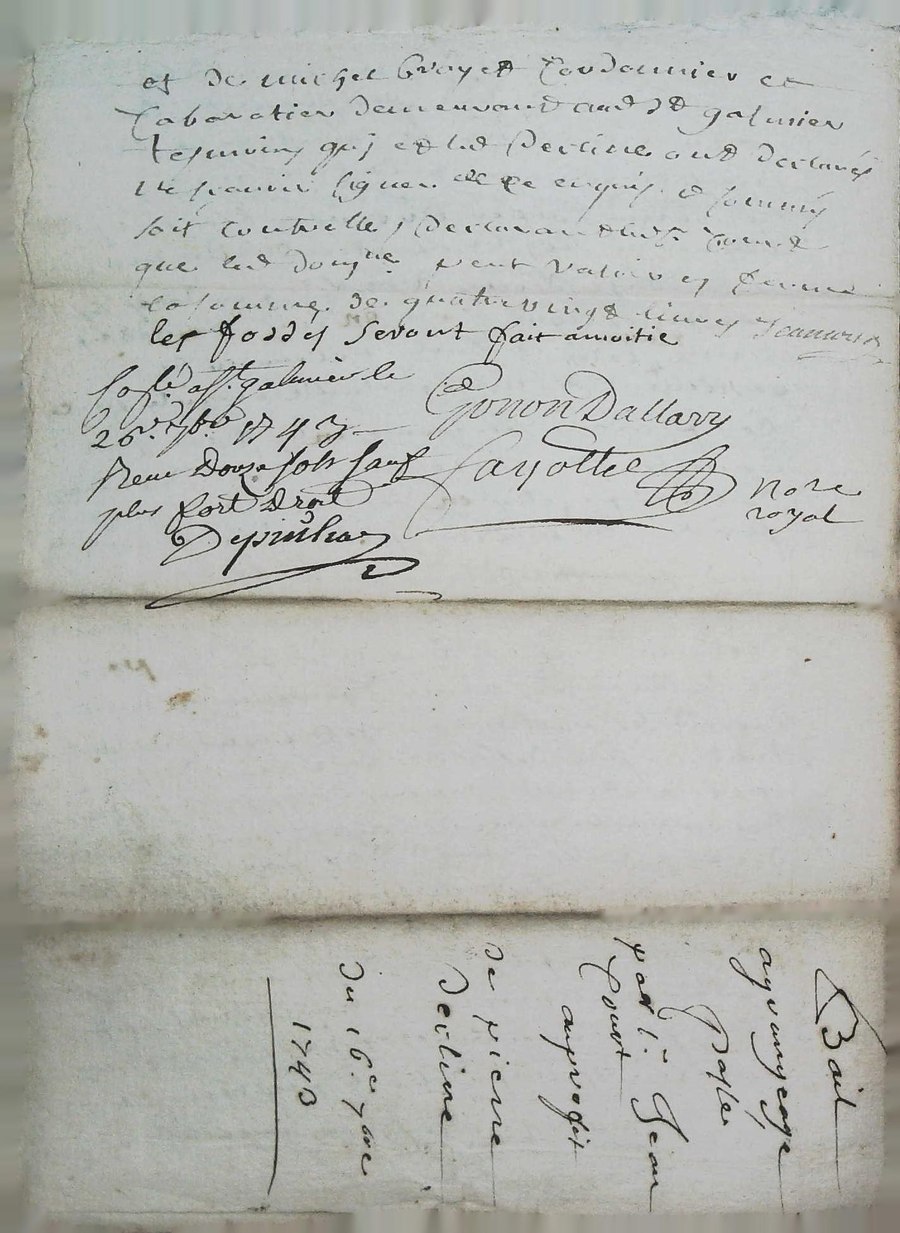 et de michel cordonnier et
Cabaretier demeurant aud st galmier
tesmoins quj et led Decline ont declarés
ne scavoir signer de ce enquis et sommés
soit controllé, Declarant led sr Couert
que led peut valoir en ferme
la somme de quatre vingt livres
les fossés seront fait amoitie
Coslé a st galmier le
26e 7bre 1743
Receu Douze sols sauf
plus fort Droit
Gonon Dallary
Fayolle
nore
royal
Bail
agrangeage
Passé
par sr Jean
Couert
auproffit
de pierre
Decline
du 16e 7bre
1743